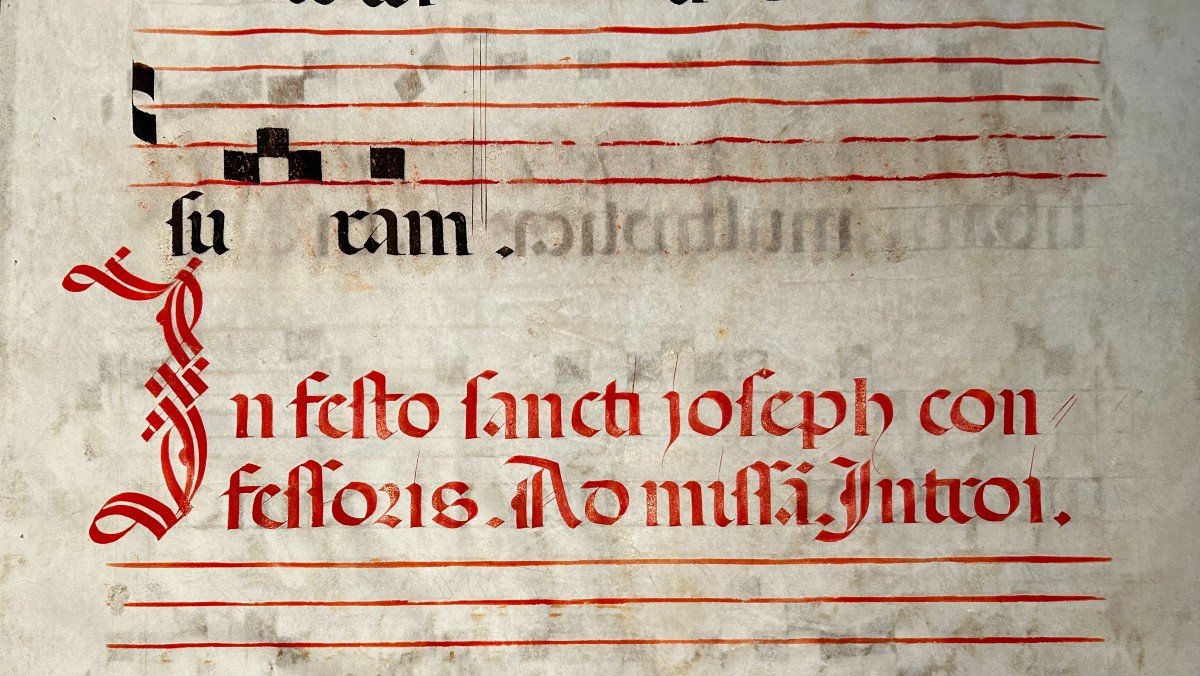 su ram .
In festo sancti joseph con
fessoris. Ad missã. Introi.